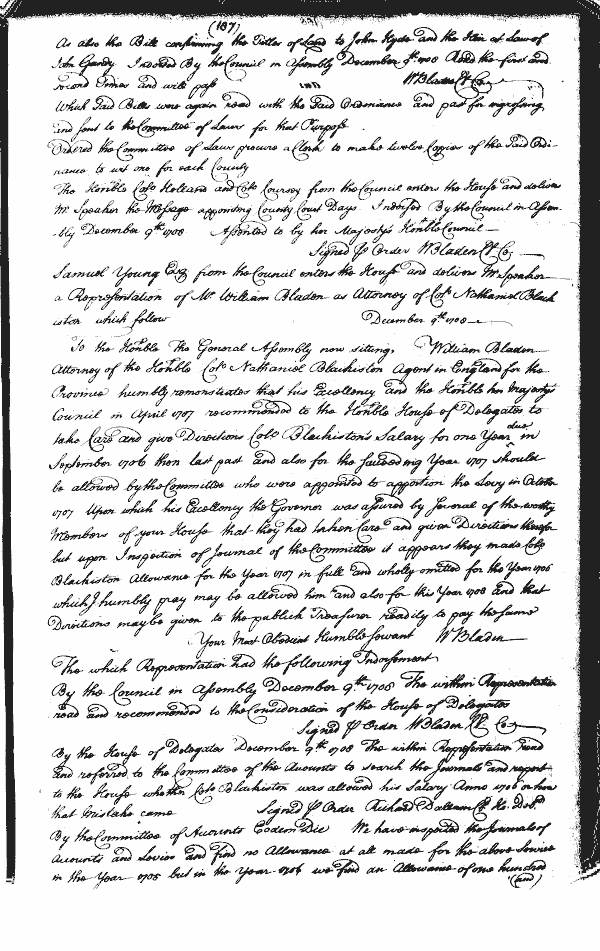 (187)
As also the Bill confirming the Titles of Land to John Hyde and the Heir at Law of
John Gandy Indorsed By the Council in Assembly December 9th 1708 Read the first and
second Times and will pass WBladen Cl Co
Which said Bills were again read with the said Ordinance and past for ingrossing
and sent to the Committee of Laws for that Purpose
Ordered the Committee of Laws procure a Clerk to make twelve Copies of the said Ordi-
nance to wit one for each County
The Honble Colo Holland and Colo Coursey from the Council enters the House and delivers
Mr Speaker the Message appointing County Court Days Indorsed By the Council in Assem-
bly December 9th 1708 Assented to by her Majestys Honble Council
Signed P Order WBladen Cl Co
Samuel Young Esq from the Council enters the House and delivers Mr Speaker
a Representation of Mr William Bladen as Attorney of Colo Nathaniel Black
iston which follow December 9th 1708
To the Honble The General Assembly now sitting, William Bladen
Attorney of the Honble Colo Nathaniel Blackiston Agent in England for the
Province humbly remonstrates that his Excellency and the Honble her Majestys
Council in April 1707 recommended to the Honble House of Delegates to
take Care and give Directions Colo Blackiston's Salary for one Year due in
September 1706 then last past and also for the succeeding Year 1707 should
be allowed by the Committee who were appointed to apportion the Levy in October
1707 Upon which his Excellency the Governor was assured by several of the worthy
Members of your House that they had taken Care and given Directions therefor
but upon Inspection of Journal of the Committee it appears they made Colo
Blackiston Allowance for the Year 1707 in full and wholly omitted for the Year 1706
which I humbly pray may be allowed him and also for this Year 1708 and that
Directions may be given to the publick Treasurer readily to pay the same
Your Most Obedient Humble Servant WBladen
The which Representation had the following Indorsement
By the Council in Assembly December 9th 1708 The within Representation
read and recommended to the Consideration of the House of Delegates
Signed P Order WBladen Cl Co
By the House of Delegates December 9th 1708 The within Representation read
and referred to the Committee of the Accounts to search the Journals and report
to the House whether Colo Blackiston was allowed his Salary Anno 1706 or how
that Mistake came Signed P Order Richard Dallam Cl Ho. Del
By the Committee of Accounts Eodem Die We have inspected the Journals of
Accounts and Levies and find no Allowance at all made for the above Service
in the Year 1705 but in the Year 1706 we find an Allowance of one hundred
(and)